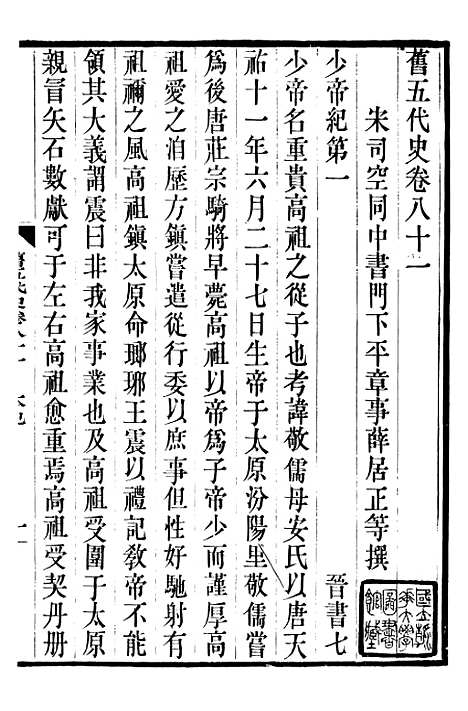 舊五代史卷八十一
宋司空同中書門下平章事薛居正等撰
少帝紀第一　晉書七
少帝名重貴高祖之從子也考諱敬儒母安氏以唐天
祐十一年六月二十七日生帝于太原汾陽里敬儒嘗
爲後唐莊宗騎將早薨高祖以帝爲子帝少而謹厚高
祖愛之洎歷方鎮嘗遣從行委以庶事但性好馳射有
祖禰之風高祖鎮太原命瑯琊王震以禮記敎帝不能
領其大義謂震曰非我家事業也及高祖受圍于太原
親冒矢石數獻可于左右高祖愈重焉高祖受契丹册
舊五代史卷八十一
一